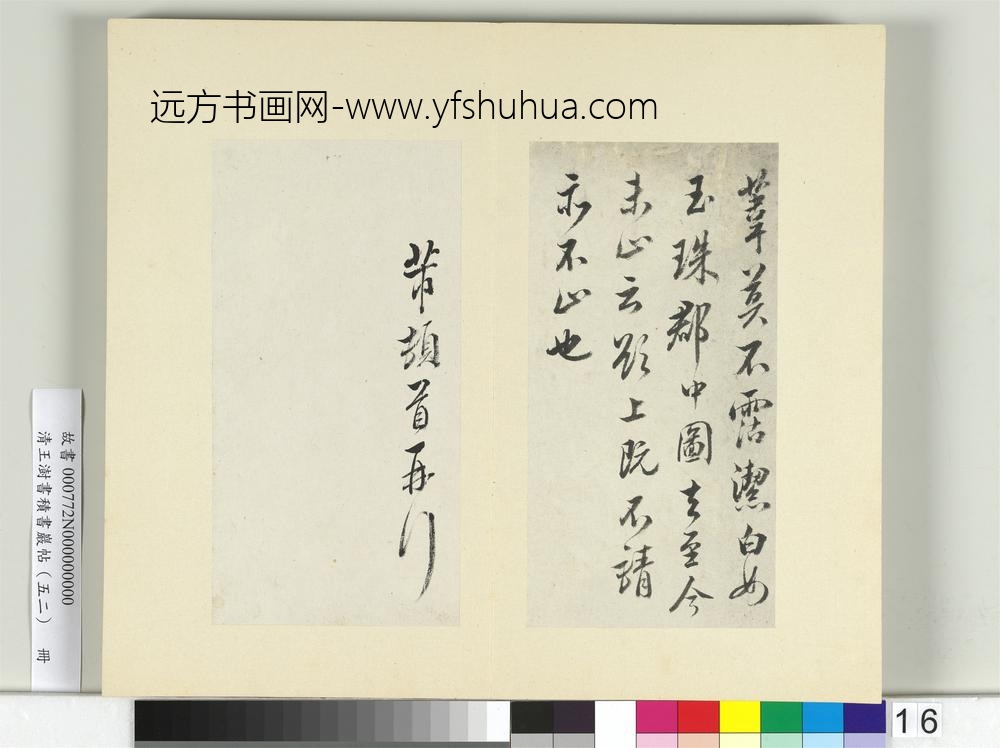 远方书画网-www.yfshuhua.com
葦莫不霑潔白如
玉珠郡中圖去至今
未止云欲上既不請
亦不止也
芾頓首再行
故書 000772N000000000
清王澍書積書巖帖（五二） 冊
16